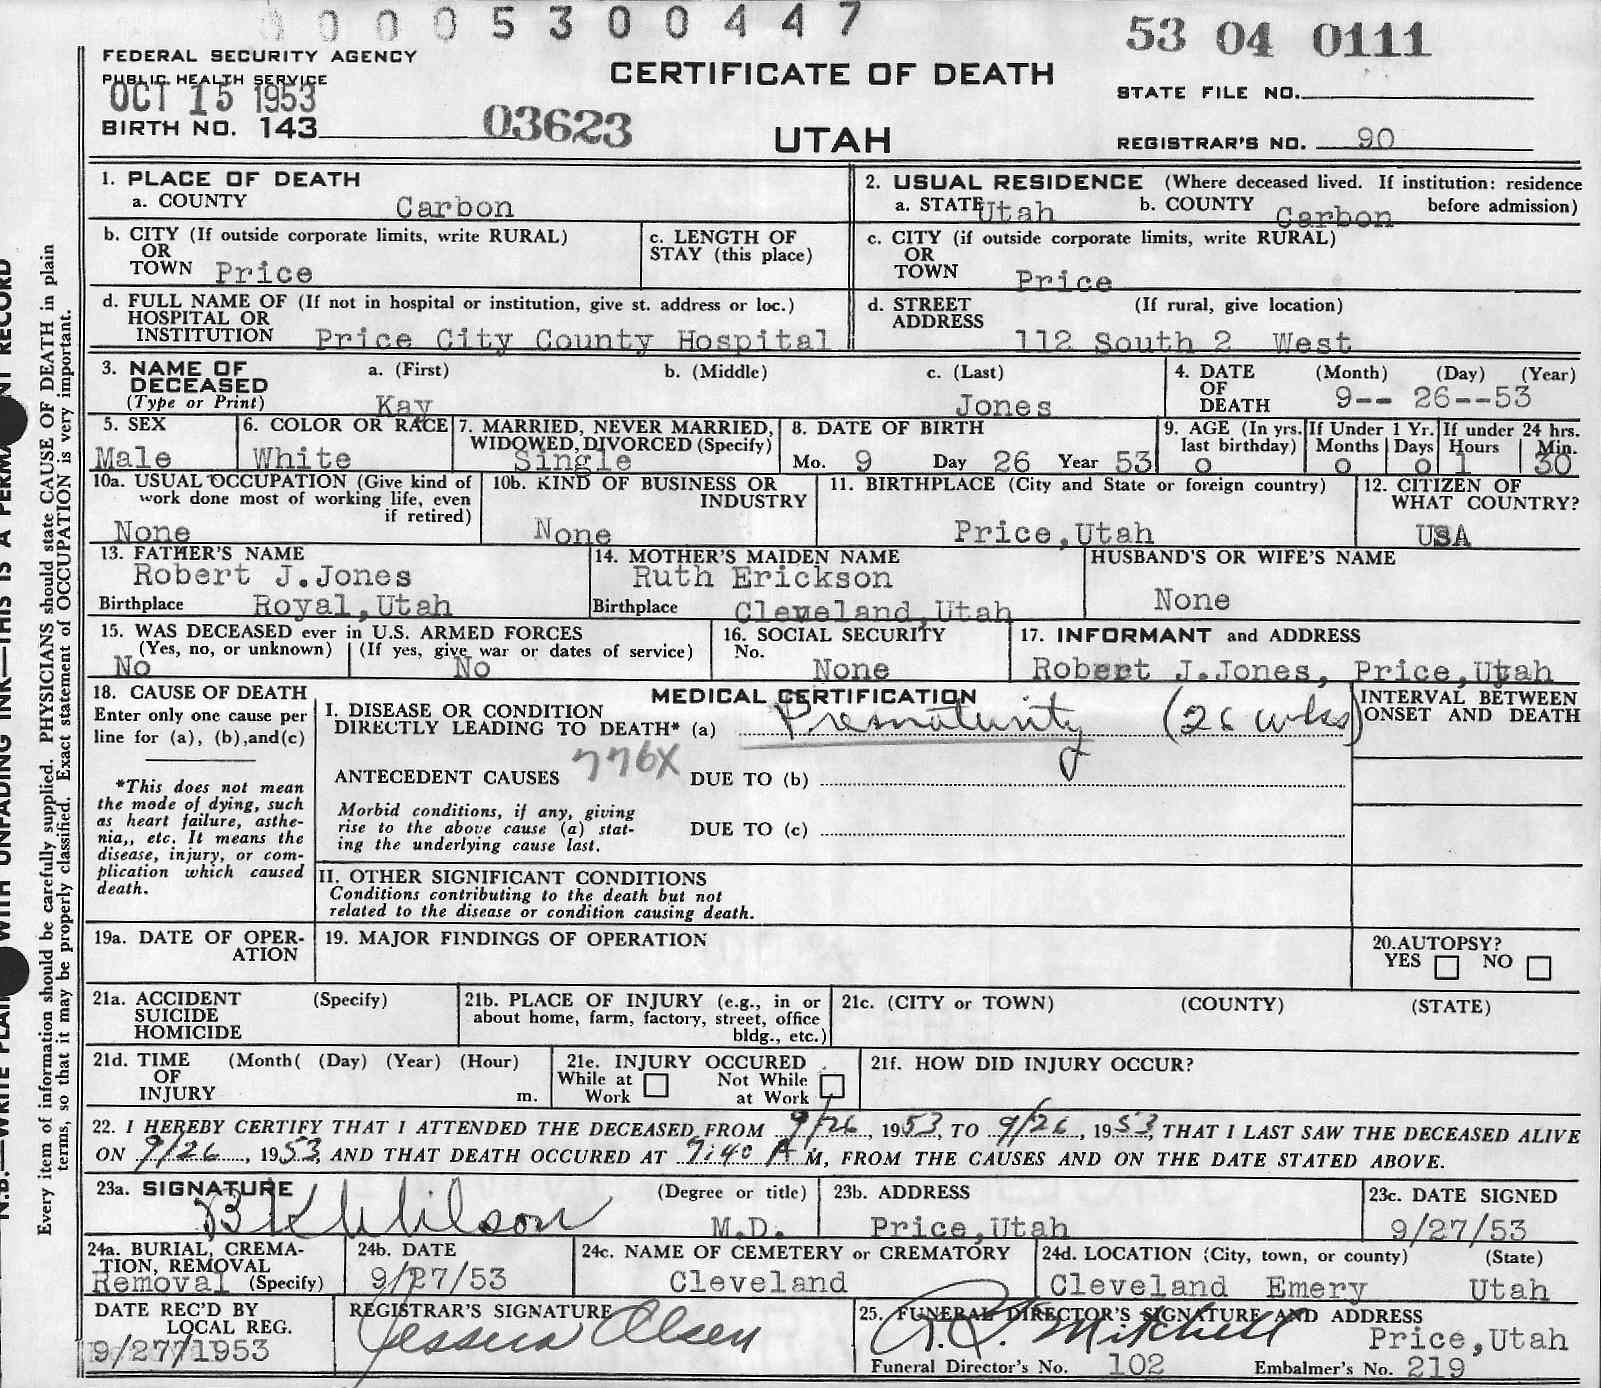 0 0 0 0 5 3 0 0 4 4 7
53 04 0111
FEDERAL SECURITY AGENCY
PUBLIC HEALTH SERVICE
OCT 15 1953
CERTIFICATE OF DEATH
STATE FILE NO.
BIRTH NO. 143
03623
UTAH
REGISTRAR'S NO. 90
1. PLACE OF DEATH
a. COUNTY Carbon
2. USUAL RESIDENCE (Where deceased lived. If institution: residence
a. STATE Utah b. COUNTY Carbon before admission)
b. CITY (If outside corporate limits, write RURAL)
OR
TOWN Price
c. LENGTH OF
STAY (this place)
c. CITY (if outside corporate limits, write RURAL)
OR
TOWN Price
d. FULL NAME OF (If not in hospital or institution, give st. address or loc.)
HOSPITAL OR
INSTITUTION Price City County Hospital
d. STREET (If rural, give location)
ADDRESS
112 South 2 West
3. NAME OF a. (First) b. (Middle) c. (Last)
DECEASED
(Type or Print) Kay Jones
4. DATE (Month) (Day) (Year)
OF
DEATH 9-- 26--53
5. SEX
Male
6. COLOR OR RACE
White
7. MARRIED, NEVER MARRIED,
WIDOWED, DIVORCED (Specify)
Single
8. DATE OF BIRTH
Mo. 9 Day 26 Year 53
9. AGE (In yrs.
last birthday)
0
If Under 1 Yr.
Months Days
0 0
If under 24 hrs.
Hours Min.
1 30
10a. USUAL OCCUPATION (Give kind of
work done most of working life, even
if retired)
None
10b. KIND OF BUSINESS OR
INDUSTRY
None
11. BIRTHPLACE (City and State or foreign country)
Price,Utah
12. CITIZEN OF
WHAT COUNTRY?
USA
13. FATHER'S NAME
Robert J.Jones
Birthplace Royal,Utah
14. MOTHER'S MAIDEN NAME
Ruth Erickson
Birthplace Cleveland,Utah
HUSBAND'S OR WIFE'S NAME
None
15. WAS DECEASED ever in U.S. ARMED FORCES
(Yes, no, or unknown) (If yes, give war or dates of service)
No No
16. SOCIAL SECURITY
No.
None
17. INFORMANT and ADDRESS
Robert J.Jones, Price,Utah
18. CAUSE OF DEATH
Enter only one cause per
line for (a), (b),and(c)
*This does not mean
the mode of dying, such
as heart failure, asthe-
nia,, etc. It means the
disease, injury, or com-
plication which caused
death.
MEDICAL CERTIFICATION
I. DISEASE OR CONDITION
DIRECTLY LEADING TO DEATH* (a) Prematurity (26 wks)
INTERVAL BETWEEN
ONSET AND DEATH
776X
ANTECEDENT CAUSES DUE TO (b)
Morbid conditions, if any, giving
rise to the above cause (a) stat-
ing the underlying cause last.
DUE TO (c)
II. OTHER SIGNIFICANT CONDITIONS
Conditions contributing to the death but not
related to the disease or condition causing death.
19a. DATE OF OPER-
ATION
19. MAJOR FINDINGS OF OPERATION
20.AUTOPSY?
YES NO
21a. ACCIDENT (Specify)
SUICIDE
HOMICIDE
21b. PLACE OF INJURY (e.g., in or
about home, farm, factory, street, office
bldg., etc.)
21c. (CITY or TOWN) (COUNTY) (STATE)
21d. TIME (Month( (Day) (Year) (Hour)
OF
INJURY m.
21e. INJURY OCCURED
While at Not While
Work at Work
21f. HOW DID INJURY OCCUR?
22. I HEREBY CERTIFY THAT I ATTENDED THE DECEASED FROM 9/26, 1953, TO 9/26, 1953, THAT I LAST SAW THE DECEASED ALIVE
ON 9/26, 1953, AND THAT DEATH OCCURED AT 9:40 A M, FROM THE CAUSES AND ON THE DATE STATED ABOVE.
23a. SIGNATURE (Degree or title)
B K Wilson M.D.
23b. ADDRESS
Price,Utah
23c. DATE SIGNED
9/27/53
24a. BURIAL, CREMA-
TION, REMOVAL
Removal (Specify)
24b. DATE
9/27/53
24c. NAME OF CEMETERY or CREMATORY
Cleveland
24d. LOCATION (City, town, or county) (State)
Cleveland Emery Utah
DATE REC'D BY
LOCAL REG.
9/27/1953
REGISTRAR'S SIGNATURE
Jessica Olsen
25. FUNERAL DIRECTOR'S SIGNATURE AND ADDRESS
Mitchell Price,Utah
Funeral Director's No. 102 Embalmer's No. 219
Every item of information should be carefully supplied. PHYSICIANS should state CAUSE OF DEATH in plain
terms, so that it may be properly classified. Exact statement of OCCUPATION is very important.
WITH UNFADING INK—THIS IS A
RECORD